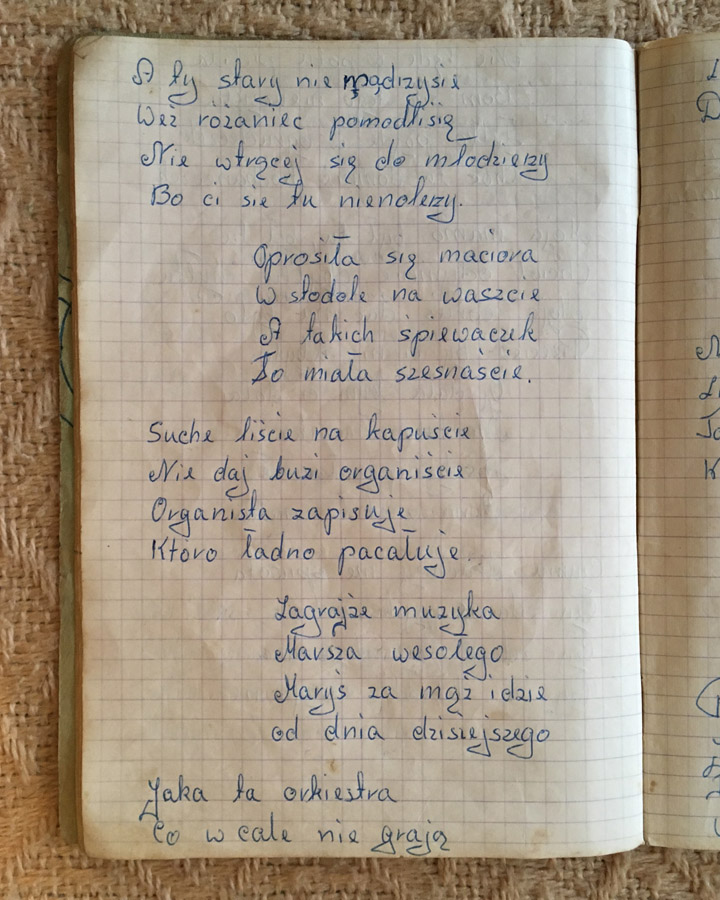 A ty stary nie mądrzysie
Weź różaniec pomodlisię
Nie wtrącej się do młodzierzy
Bo ci sie tu nienolezy.
Oprosiła się maciora
W stodole na waszcie
A takich śpiewaczek
To miała szesnaście.
Suche liście na kapuście
Nie daj buzi organiście
Organista zapisuje
Ktoro ładno pacałuje.
Zagrajże muzyka
Marsza wesołego
Maryś za mąż idzie
od dnia dzisiejszego
Jaka ta orkiestra
Co w cale nie grają